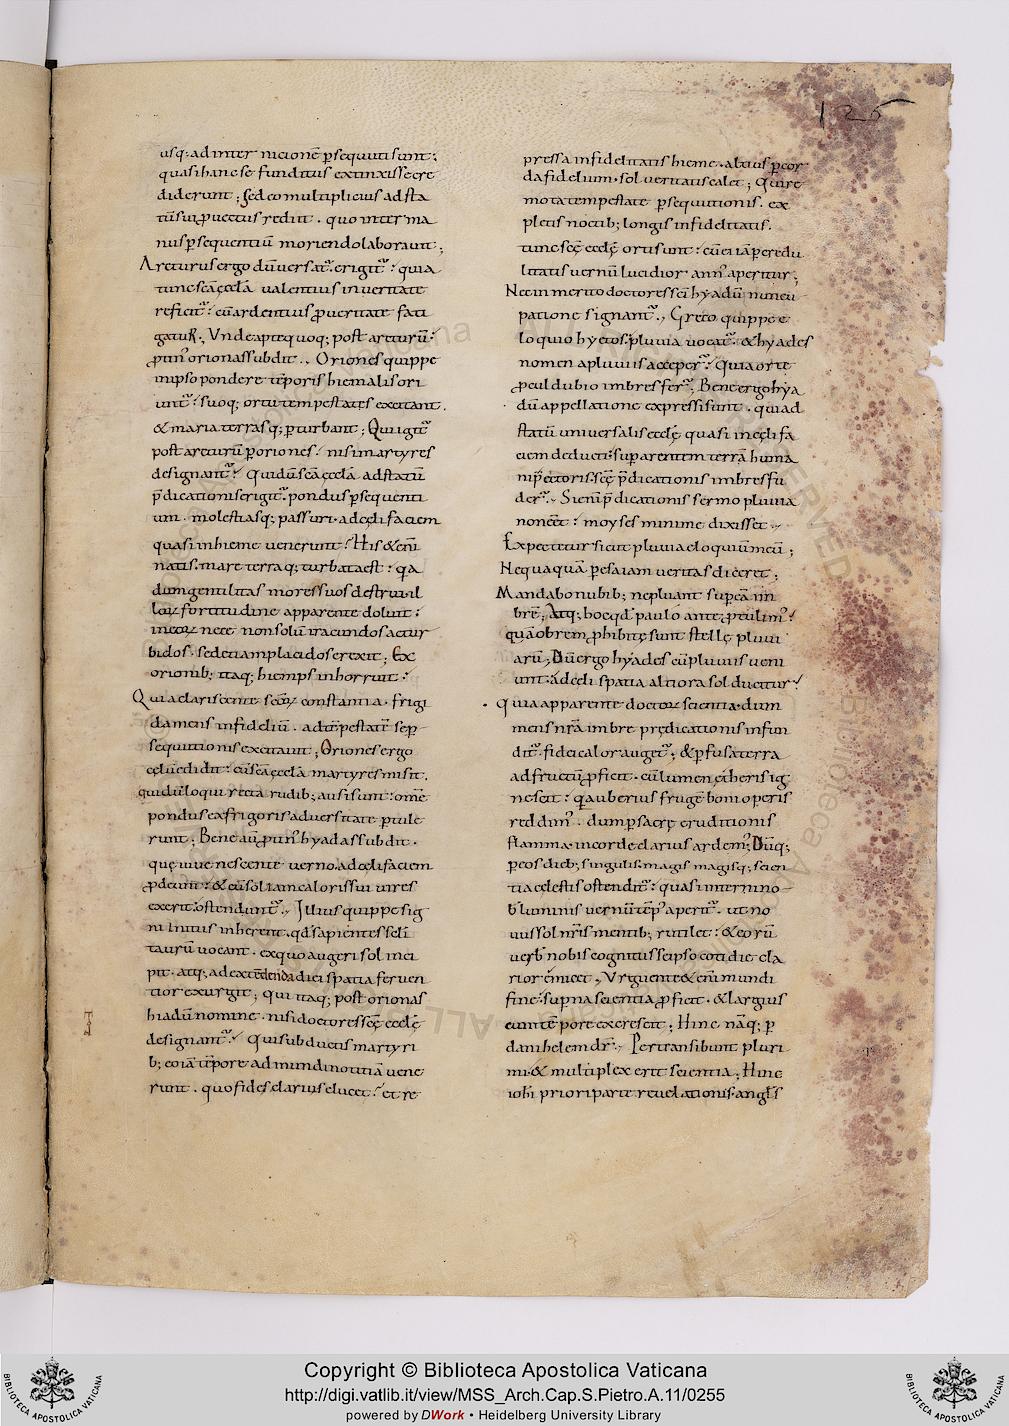 125
usq; ad inter nicionē ꝑsequuti sunt;
quasi hanc se funditus extinxisse cre
diderunt; sed eo multiplicius ad sta
tū suū ꝓuectus rediit. quo inter ma
nus ꝑsequentiū moriendo laborauit;
Arcturus ergo dū uersat̄. erigit̄; quia
tunc sc̄a eccl̄a ualentius in ueritate
reficit̄; cū ardentius ꝓ ueritate fati
gatur., Vnde apte quoq; post arcturū;
ꝓtin' orionas subdit., Oriones quippe
in ipso pondere tēporis hiemalis ori
unt̄; suoq; ortu tempestates excitant.
& maria terrasq; ꝑturbant; Qui igit̄
post arcturū ꝑ oriones; nisi martyres
designant̄; Qui dū sc̄a eccl̄a ad statū
p̄dicationis erigit̄. pondus ꝑsequenti
um. molestiasq; passuri. ad cęli faciem
quasi in hieme uenerunt; His & eni
natis. mare terraq; turbata est; q̄a
dum gentilitas mores suos destrui il
loꝝ fortitudine apparente doluit;
in eoꝝ nece non solū iracundos ac tur
bidos. sed etiam placidos erexit; Ex
orionib; itaq; hiemps inhorruit;
Quia clariscente sc̄oꝝ constantia. frigi
da mens infideliū. ad tēpestatē se ꝑ
sequutionis excitauit; Oriones ergo
cęlū edidit; cū sc̄a eccl̄a martyres misit.
qui dū loqui recta rudib; ausi sunt; om̄e
pondus ex frigoris aduersitate ꝑtule
runt; Bene aū ꝓtin' hyadas subdit.
quę iuuenescente uerno. ad cęli faciem
ꝓdeunt; & cū sol iam caloris sui uires
exerit. ostendunt̄., Illius quippe sig
ni initiis inherent. qd̄ sapientes sc̄li
taurū uocant. ex quo augeri sol inci
pit. atq; ad extēdenda diei spatia feruen
tior exurgit; qui itaq; post orionas
hiadū nomine. nisi doctores sc̄ę eccl̄ę
designant̄; Qui subductis martyri
b; eo iā tēpore ad mundi notitiā uene
runt. quo fides clarius elucet; et re
pressa infidelitatis hieme. altius ꝑ cor
da fidelium. sol ueritatis calet; Qui re
mota tempestate ꝑsequitionis. ex
pletis noctib; longis infidelitatis.
tunc sc̄ę eccl̄ę orti sunt; cū ei iā ꝑ credu
litatis uernū lucidior ann' aperitur;
Nec inmerito doctores sc̄i hyadū nuncu
patione signant̄., Greco quippe e
loquio hyetos. pluuia uocat̄. & hyades
nomen a pluuiis acceper̄; Quia orte
ꝓcul dubio imbres fer̄; Bene ergo hya
dū appellatione expressi sunt. qui ad
statū uniuersalis eccl̄ę quasi in cęli fa
ciem deducti; sup̄ arentem terrā huma
ni pectoris. sc̄ę p̄dicationis imbres fu
der̄., Si enī p̄dicationis sermo pluuia
non eēt; moyses minime dixisset.,
Expectetur sicut pluuia eloquiū meū;
Nequaquā ꝑ esaiam ueritas diceret;
Mandabo nubib; ne pluant sup̄ eā im
brē; Atq; hoc qd̄ paulo ante ꝓtulim';
quā obrem ꝓhibitę sunt stellę pluui
arū; Dū ergo hyades cū pluuiis ueni
unt. ad cęli spatia altiora sol ducitur;
Quia apparente doctoꝝ scientia. dum
mens nr̄a imbre prędicationis infun
dit̄. fidei calor auget̄; & ꝑfusa terra
ad fructū ꝓficit. cū lumen ętheris ig
nescit; q̄a uberius frugē boni operis
reddim'. dum ꝑ sacrę eruditionis
flamma in corde clarius ardem'; Dūq;
ꝑ eos dieb; singulis. magis magisq; scien
tia cęlestis ostendit̄; quasi interni no
b̄ luminis uernū tēp' aperit̄. ut no
uus sol nr̄is mentib; rutilet; & eorū
uerb' nobis cognitus se ipso cotidie cla
rior emicet., Vrguente & enī mundi
fine. sup̄na scientia ꝓficit. & largius
cum tēpore excrescit; Hinc nāq; ꝑ
danihelem dr̄., Pertransibunt pluri
mi. & multiplex erit scientia; Hinc
iohi priori parte reuelationis. angl̄s
Copyright © Biblioteca Apostolica Vaticana
http://digi.vatlib.it/view/MSS_Arch.Cap.S.Pietro.A.11/0255
powered by DWork • Heidelberg University Library
BIBLIOTECA APOSTOLICA VATICANA
BIBLIOTECA APOSTOLICA VATICANA